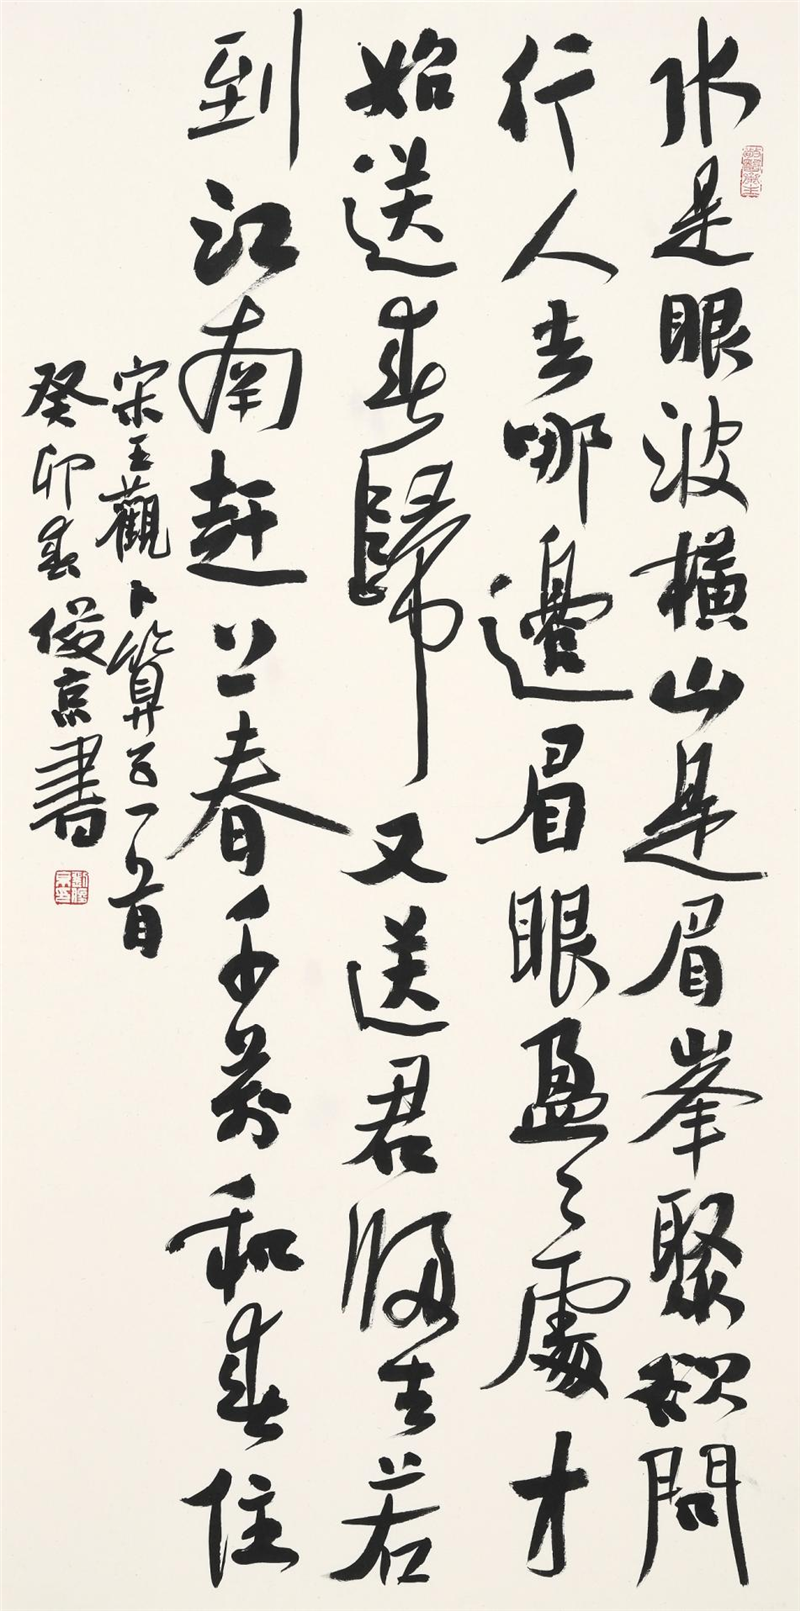 水是眼波橫山是眉峯聚欲問
行人去哪邊眉眼盈々處才
始送春歸又送君歸去若
到江南趕上春千萬和春住
宋王觀卜算子一首
癸卯春俊京書